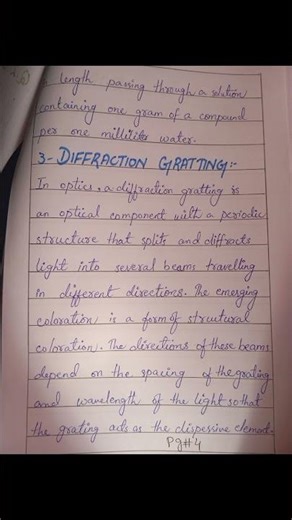 length passing through a solution
containing one gram of a compound
per one milliliter water.
3- DIFFRACTION GRATTING:-
In optics, a diffraction gratting is
an optical component with a periodic
structure that splits and diffracts
light into several beams travelling
in different directions. The emerging
coloration is a form of structural
coloration. The directions of these beams
depend on the spacing of the grating
and wavelength of the light so that
the grating acts as the dispessive element.
Pg#4